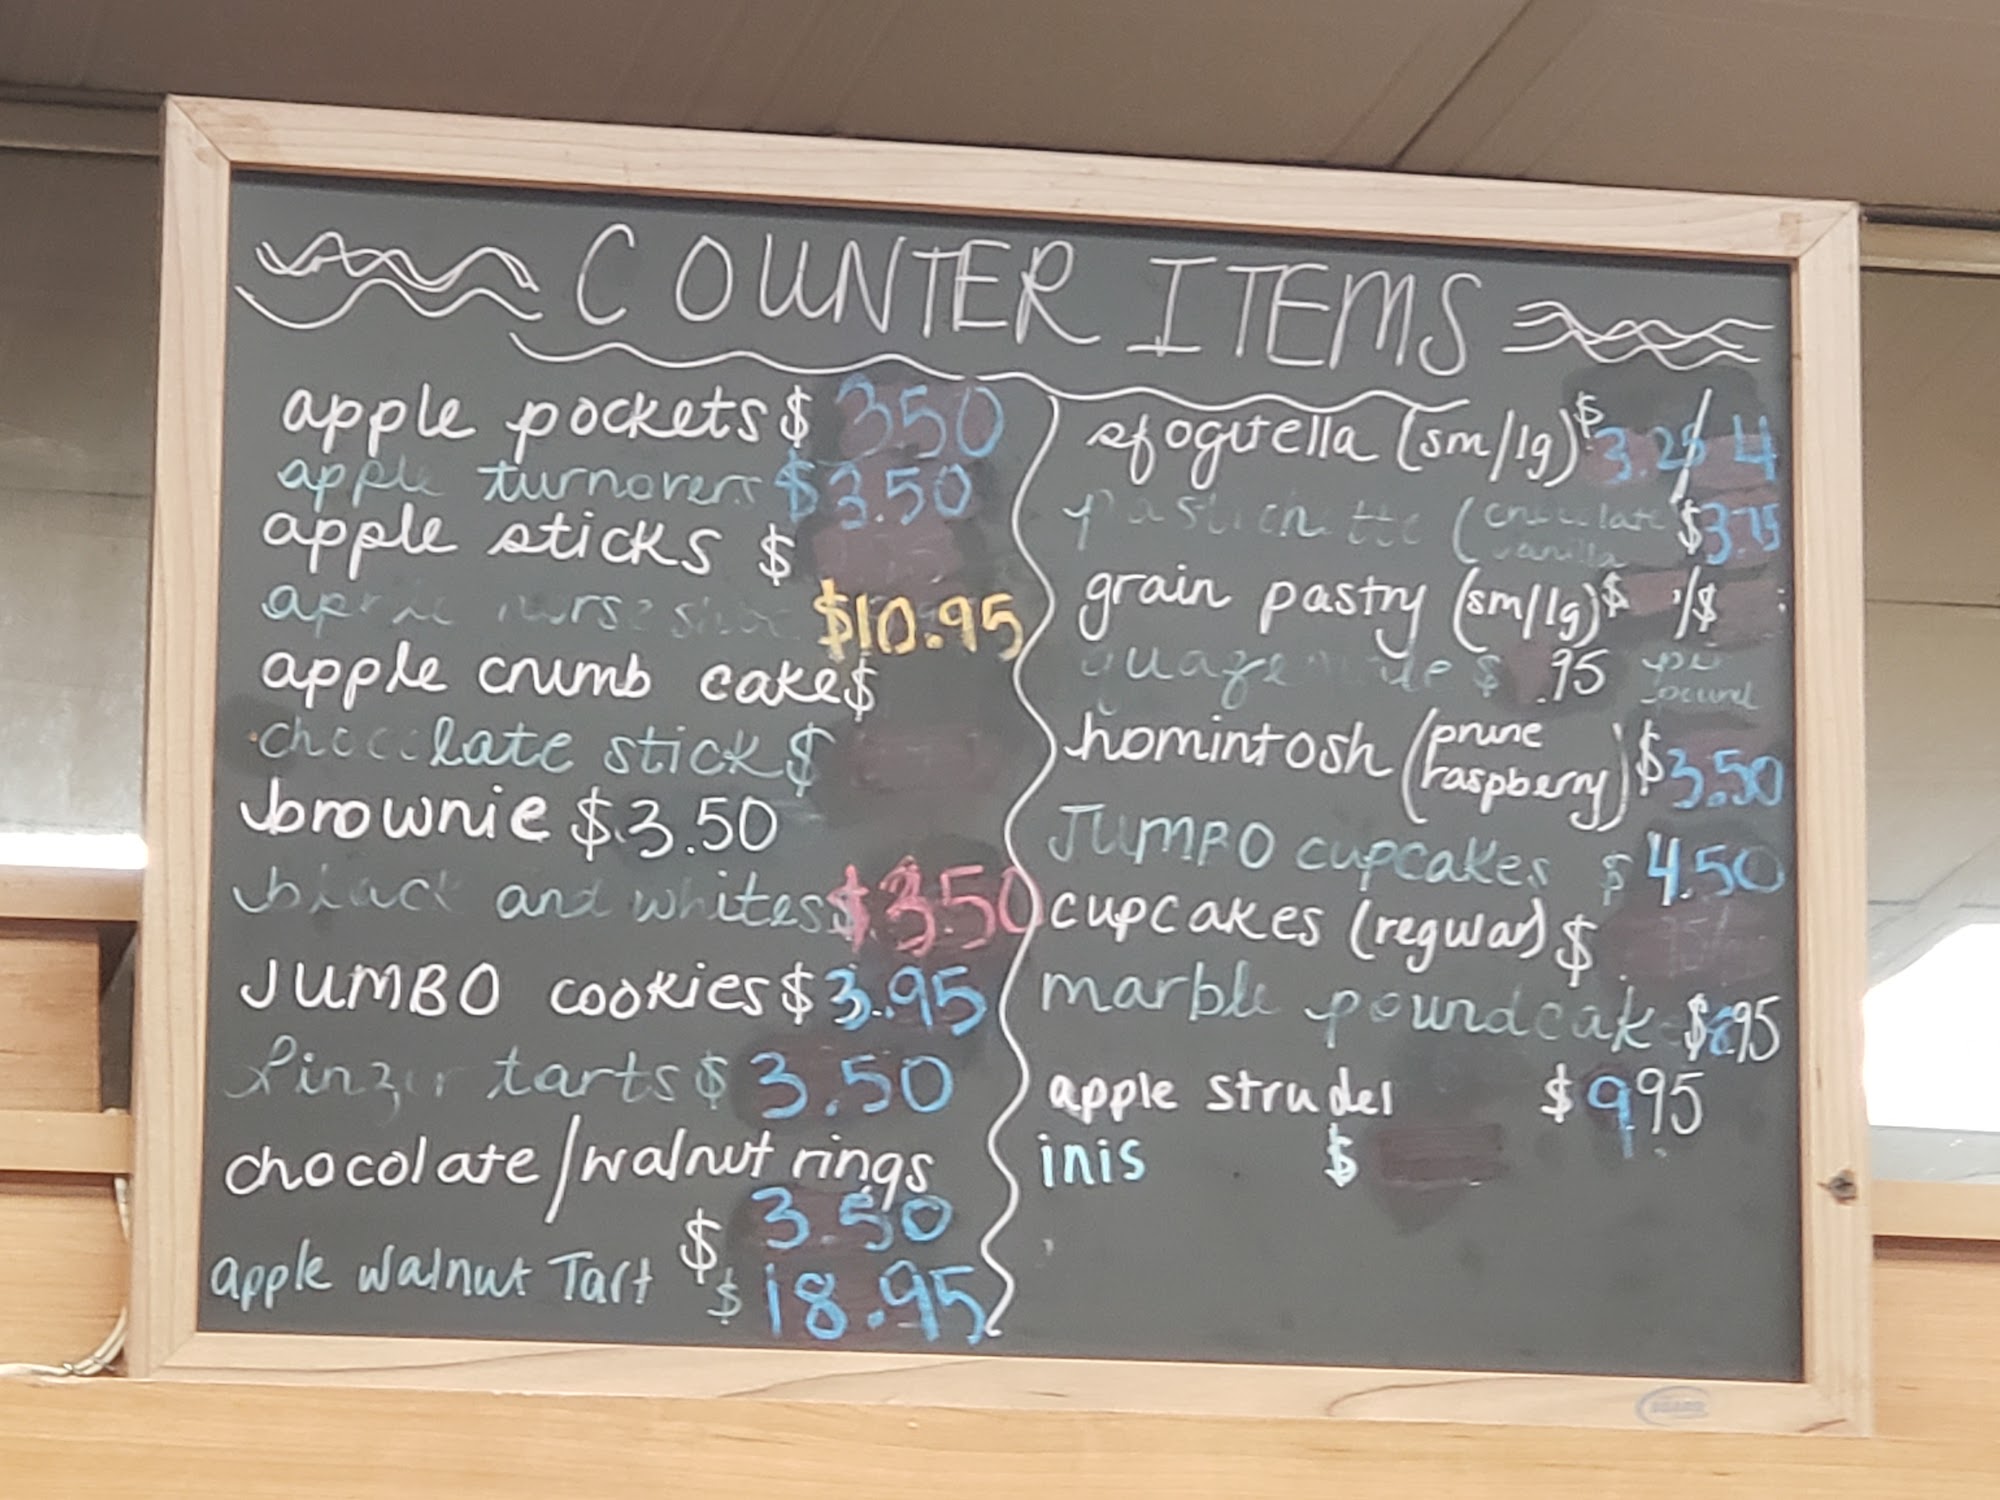 COUNTER ITEMS
apple pockets $ 350
apple turnovers $3.50
apple sticks $
$10.95
apple crumb cake $
chocolate stick $
brownie $3.50
black and whites $3.50
JUMBO cookies $3.95
linzer tarts $3.50
chocolate/walnut rings
$3.50
apple walnut Tart $18.95
sfogitella (sm/lg) $3.25/4
(chocolate $3.75
vanilla
grain pastry (sm/lg) $ /$
$ .95 per
pound
homintosh (prune
raspberry) $3.50
JUMBO cupcakes $4.50
cupcakes (regular) $
marble pound cake $8.95
apple strudel $995
inis $